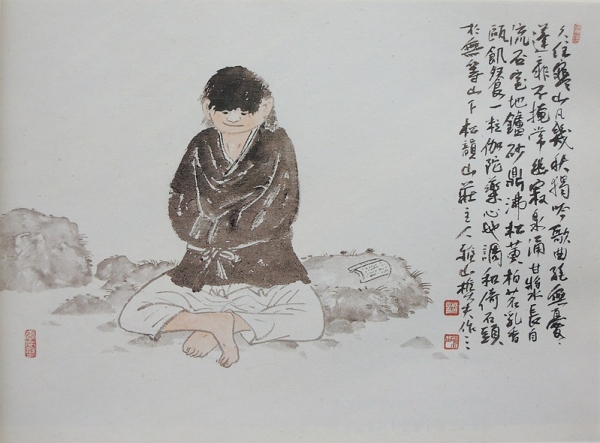 久住寒山凡幾秋獨吟歌曲絕無憂
蓬扉不掩常幽寂泉涌甘漿長自
流石室地鑪砂鼎沸松黃柏茗乳香
甌飢餐一粒伽陀藥心地調和倚石頭
於無山下松韻山莊主人山樵夫作